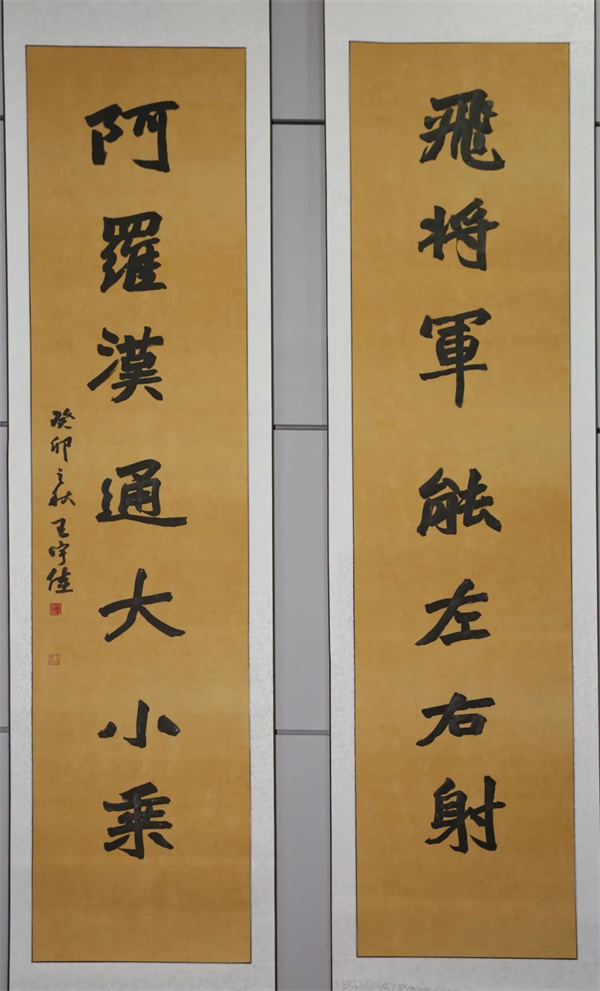 飛将軍能左右射
阿羅漢通大小乘
癸卯之秋王宇佳